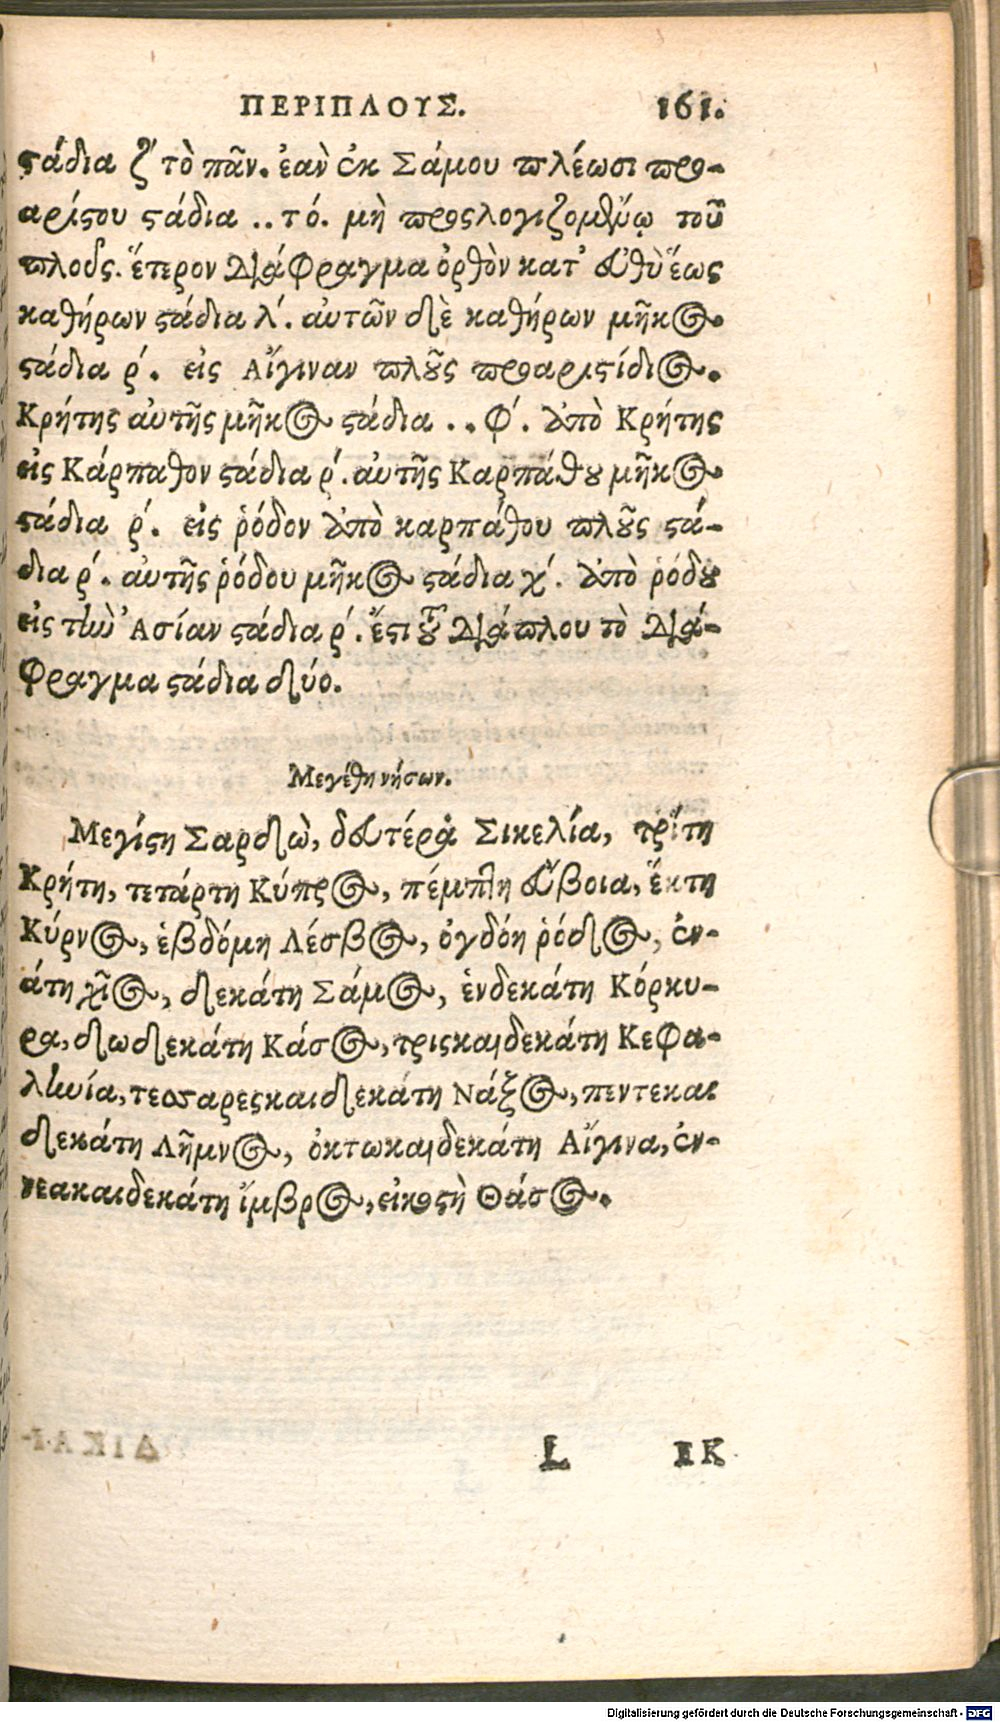 ΠΕΡΙΠΛΟΥΣ. 161.
ϛάδια ζ΄ τὸ πᾶν. ἐαν ἐκ Σάμου πλέωσι προ-
αρίϛου ϛάδια ..τό. μὴ προςλογιζομένῳ τοῦ
πλοός. ἕτερον διάφραγμα ὀρθὸν κατ' εὐθὺ ἕως
καθήρων ϛάδια λ΄. αὐτῶν δὲ καθήρων μῆκος
ϛάδια ρ΄. εἰς Αἴγιναν πλοῦς προαριϛίδιος.
Κρήτης αὐτῆς μῆκος ϛάδια ..φ΄. ἀπὸ Κρήτης
εἰς Κάρπαθον ϛάδια ρ΄. αὐτῆς Καρπάθου μῆκος
ϛάδια ρ΄. εἰς ῥόδον ἀπὸ καρπάθου πλοῦς ϛά-
δια ρ΄. αὐτῆς ῥόδου μῆκος ϛάδια χ΄. ἀπὸ ῥόδου
εἰς τὴν Ἀσίαν ϛάδια ρ΄. ἔϛι τοῦ διάπλου τὸ διά-
φραγμα ϛάδια δύο.
Μεγέθη νήσων.
Μεγίϛη Σαρδὼ, δευτέρα Σικελία, τρίτη
Κρήτη, τετάρτη Κύπρος, πέμπτη Εὔβοια, ἕκτη
Κύρνος, ἑβδόμη Λέσβος, ὀγδόη ῥόδος, ἐν-
άτη χῖος, δεκάτη Σάμος, ἑνδεκάτη Κόρκυ-
ρα, δωδεκάτη Κάσος, τριςκαιδεκάτη Κεφα-
ληνία, τεσσαρεςκαιδεκάτη Νάξος, πεντεκαι
δεκάτη Λῆμνος, ὀκτωκαιδεκάτη Αἴγινα, ἐν-
νεακαιδεκάτη ἴμβρος, εἰκοϛὴ Θάσος.
L ΔΙΚ
Digitalisierung gefördert durch die Deutsche Forschungsgemeinschaft - DFG